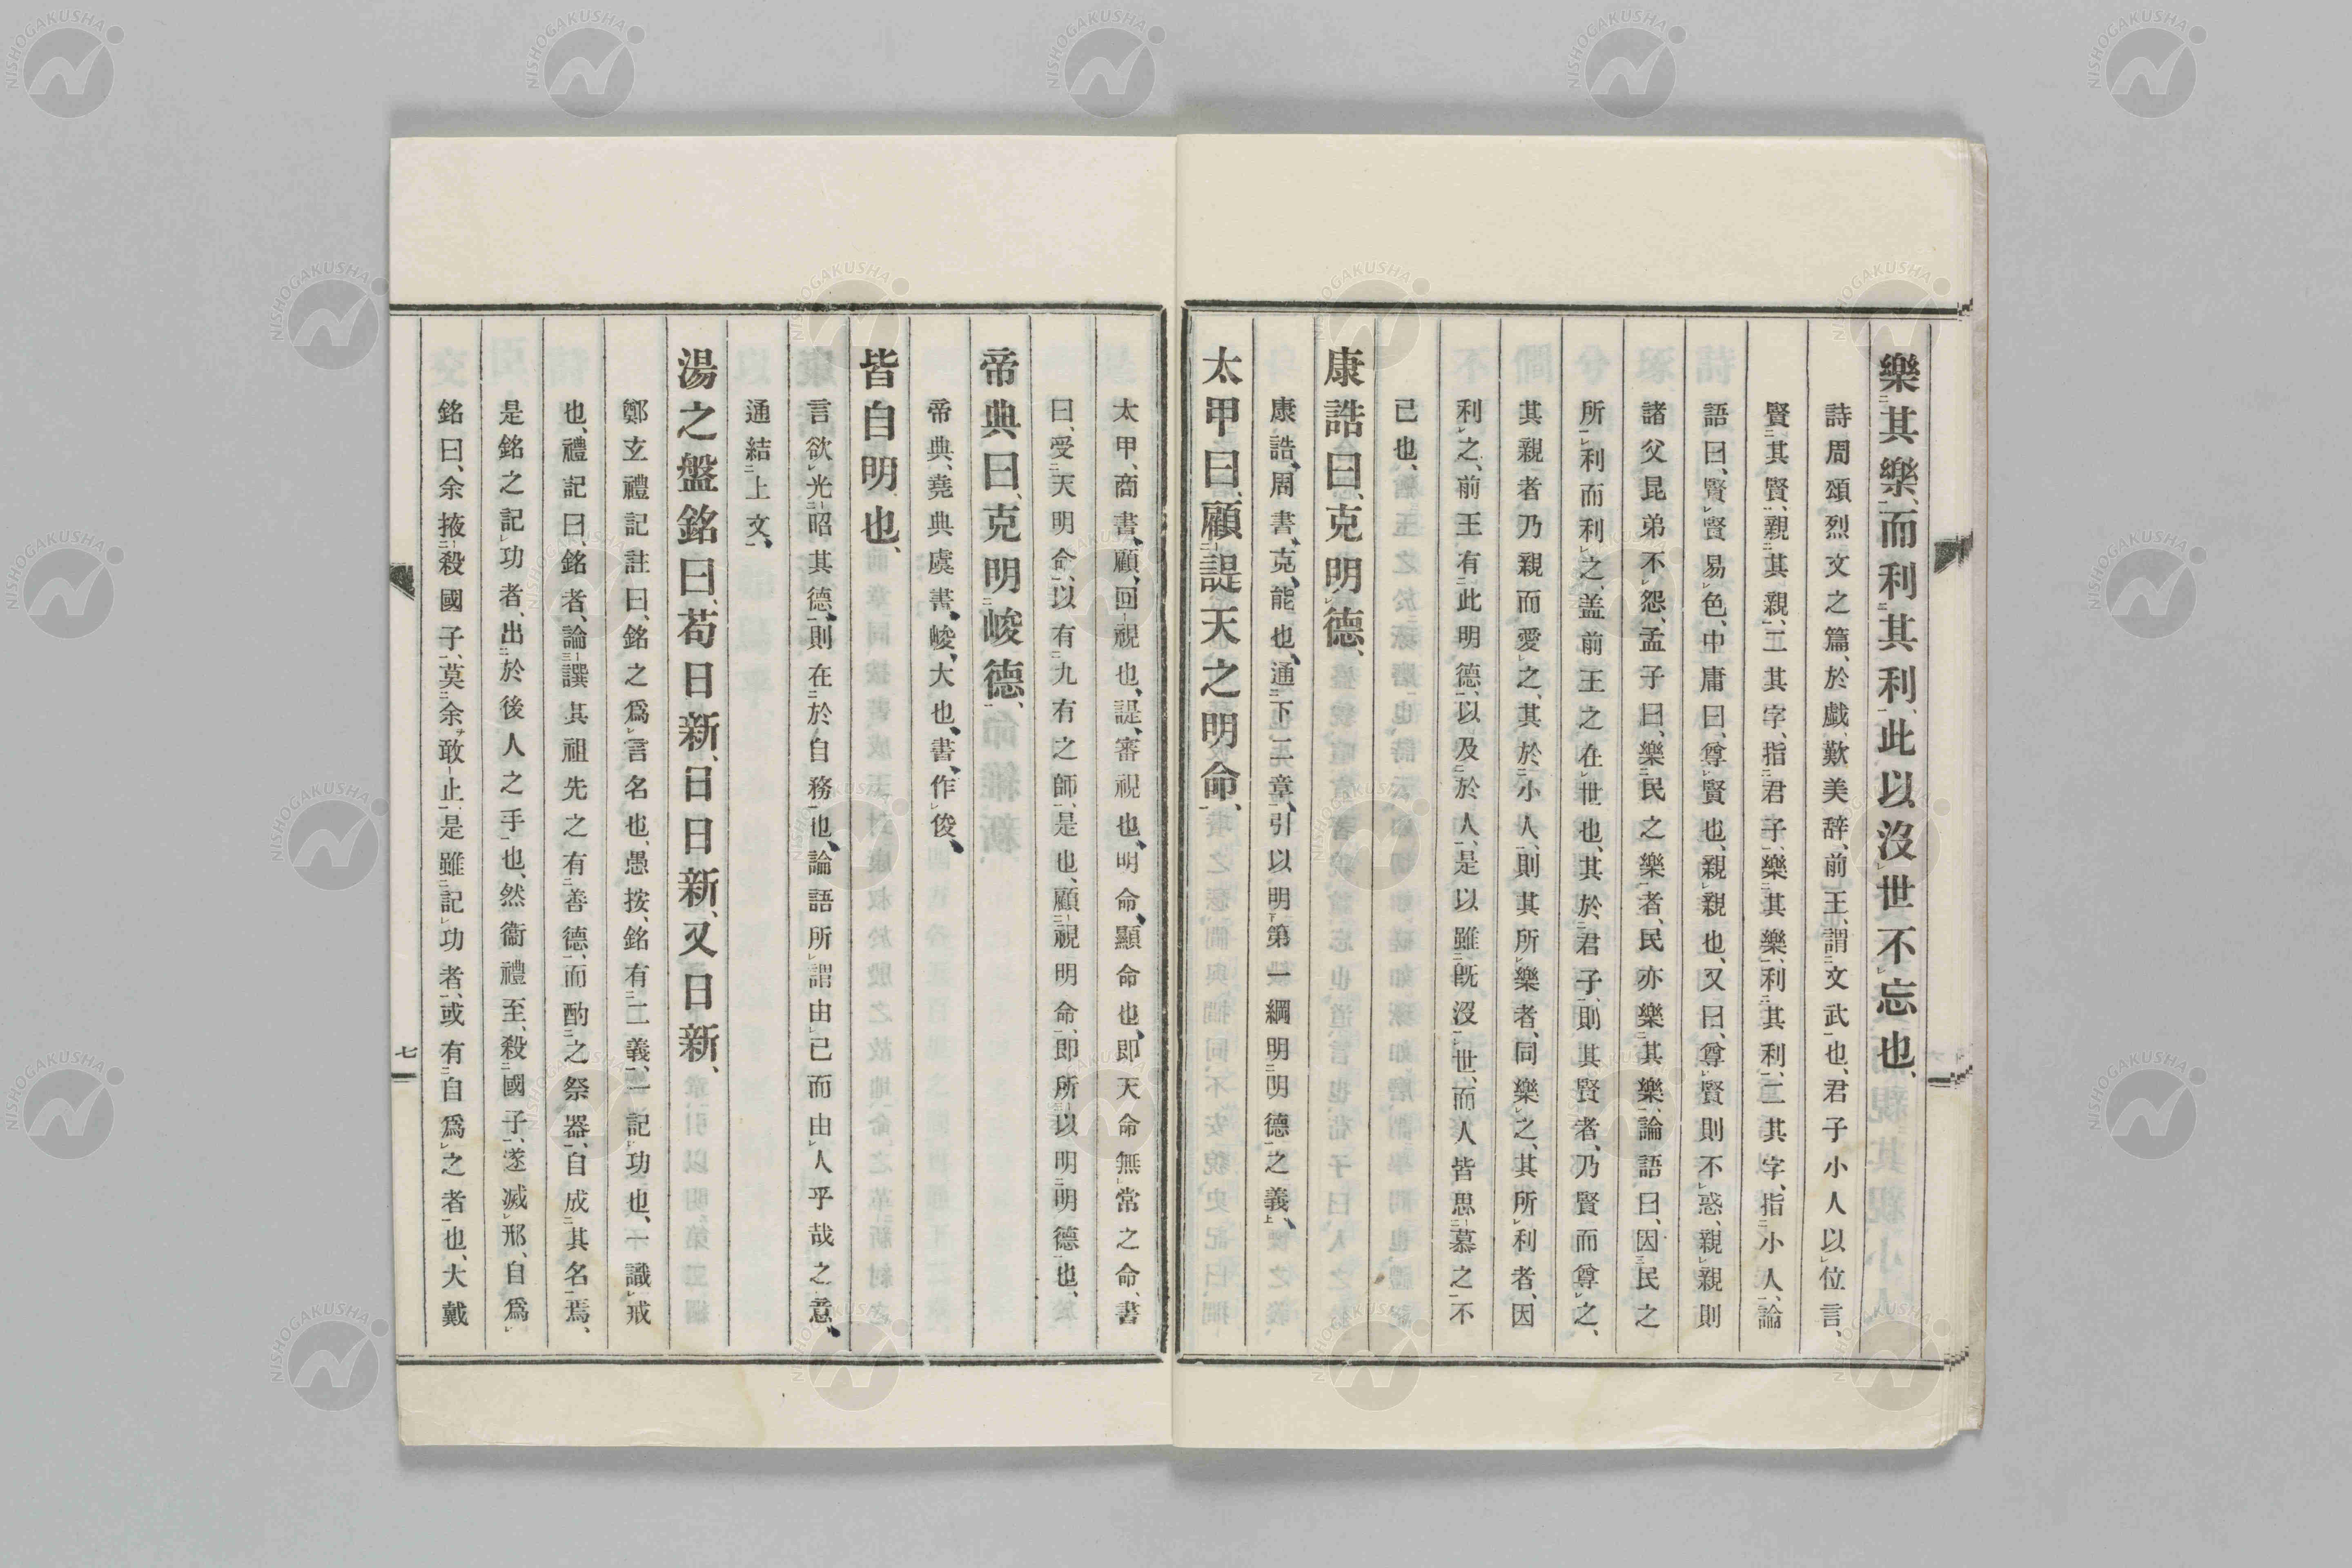 樂其樂、而利其利、此以沒世不忘也、
詩周頌烈文之篇、於戲、歎美辭、前王、謂文武也、君子小人以位言、
賢其賢、親其親、二其字、指君子、樂其樂、利其利、二其字、指小人、論
語曰、賢賢易色、中庸曰、尊賢也、親親也、又曰、尊賢則不惑、親親則
諸父昆弟不怨、孟子曰、樂民之樂者、民亦樂其樂、論語曰、因民之
所利而利之、蓋前王之在世也、其於君子、則其賢者、乃賢而尊之、
其親者乃親而愛之、其於小人、則其所樂者、同樂之、其所利者、因
利之、前王有此明德、以及於人、是以雖既沒世、而人皆思慕之不
已也、
康誥曰、克明德、
康誥、周書、克、能也、通下二章、引以明第一綱明明德之義、
太甲曰、顧諟天之明命、
太甲、商書、顧、回視也、諟、審視也、明命、顯命也、即天命無常之命、書
曰、受天明命、以有九有之師、是也、顧視明命、即所以明明德也、
帝典曰、克明峻德、
帝典、堯典虞書、峻、大也、書、作俊、
皆自明也、
言欲光昭其德、則在於自務也、論語所謂由己而由人乎哉之意、
通結上文、
湯之盤銘曰、苟日新、日日新、又日新、
鄭玄禮記註曰、銘之爲言名也、愚按、銘有二義、一記功也、一識戒
也、禮記曰、銘者、論譔其祖先之有善德、而酌之祭器、自成其名焉、
是銘之記功者、出於後人之手也、然衞禮至、殺國子、遂滅邢、自爲
銘曰、余掖殺國子、莫余敢止、是雖記功者、或有自爲之者也、大戴
七
NISHOGAKUSHA